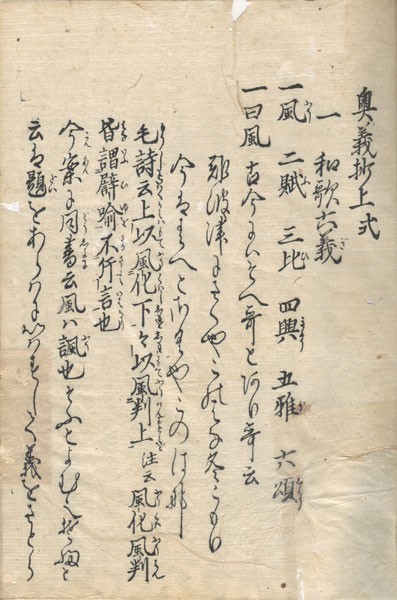 奥義抄上式
一 和歌六義
一風 二賦 三比 四興 五雅 六頌
一曰風 古今にいはくそへ哥となり哥云
難波津にさくやこの花冬こもり
今ははるへとさくやこのはな
毛詩云上以風化下々以風判上 注云 風化風判
皆謂辟喩不斥言也
今案に同書云風ハ諷也
云は題をあらはに 義をさとら